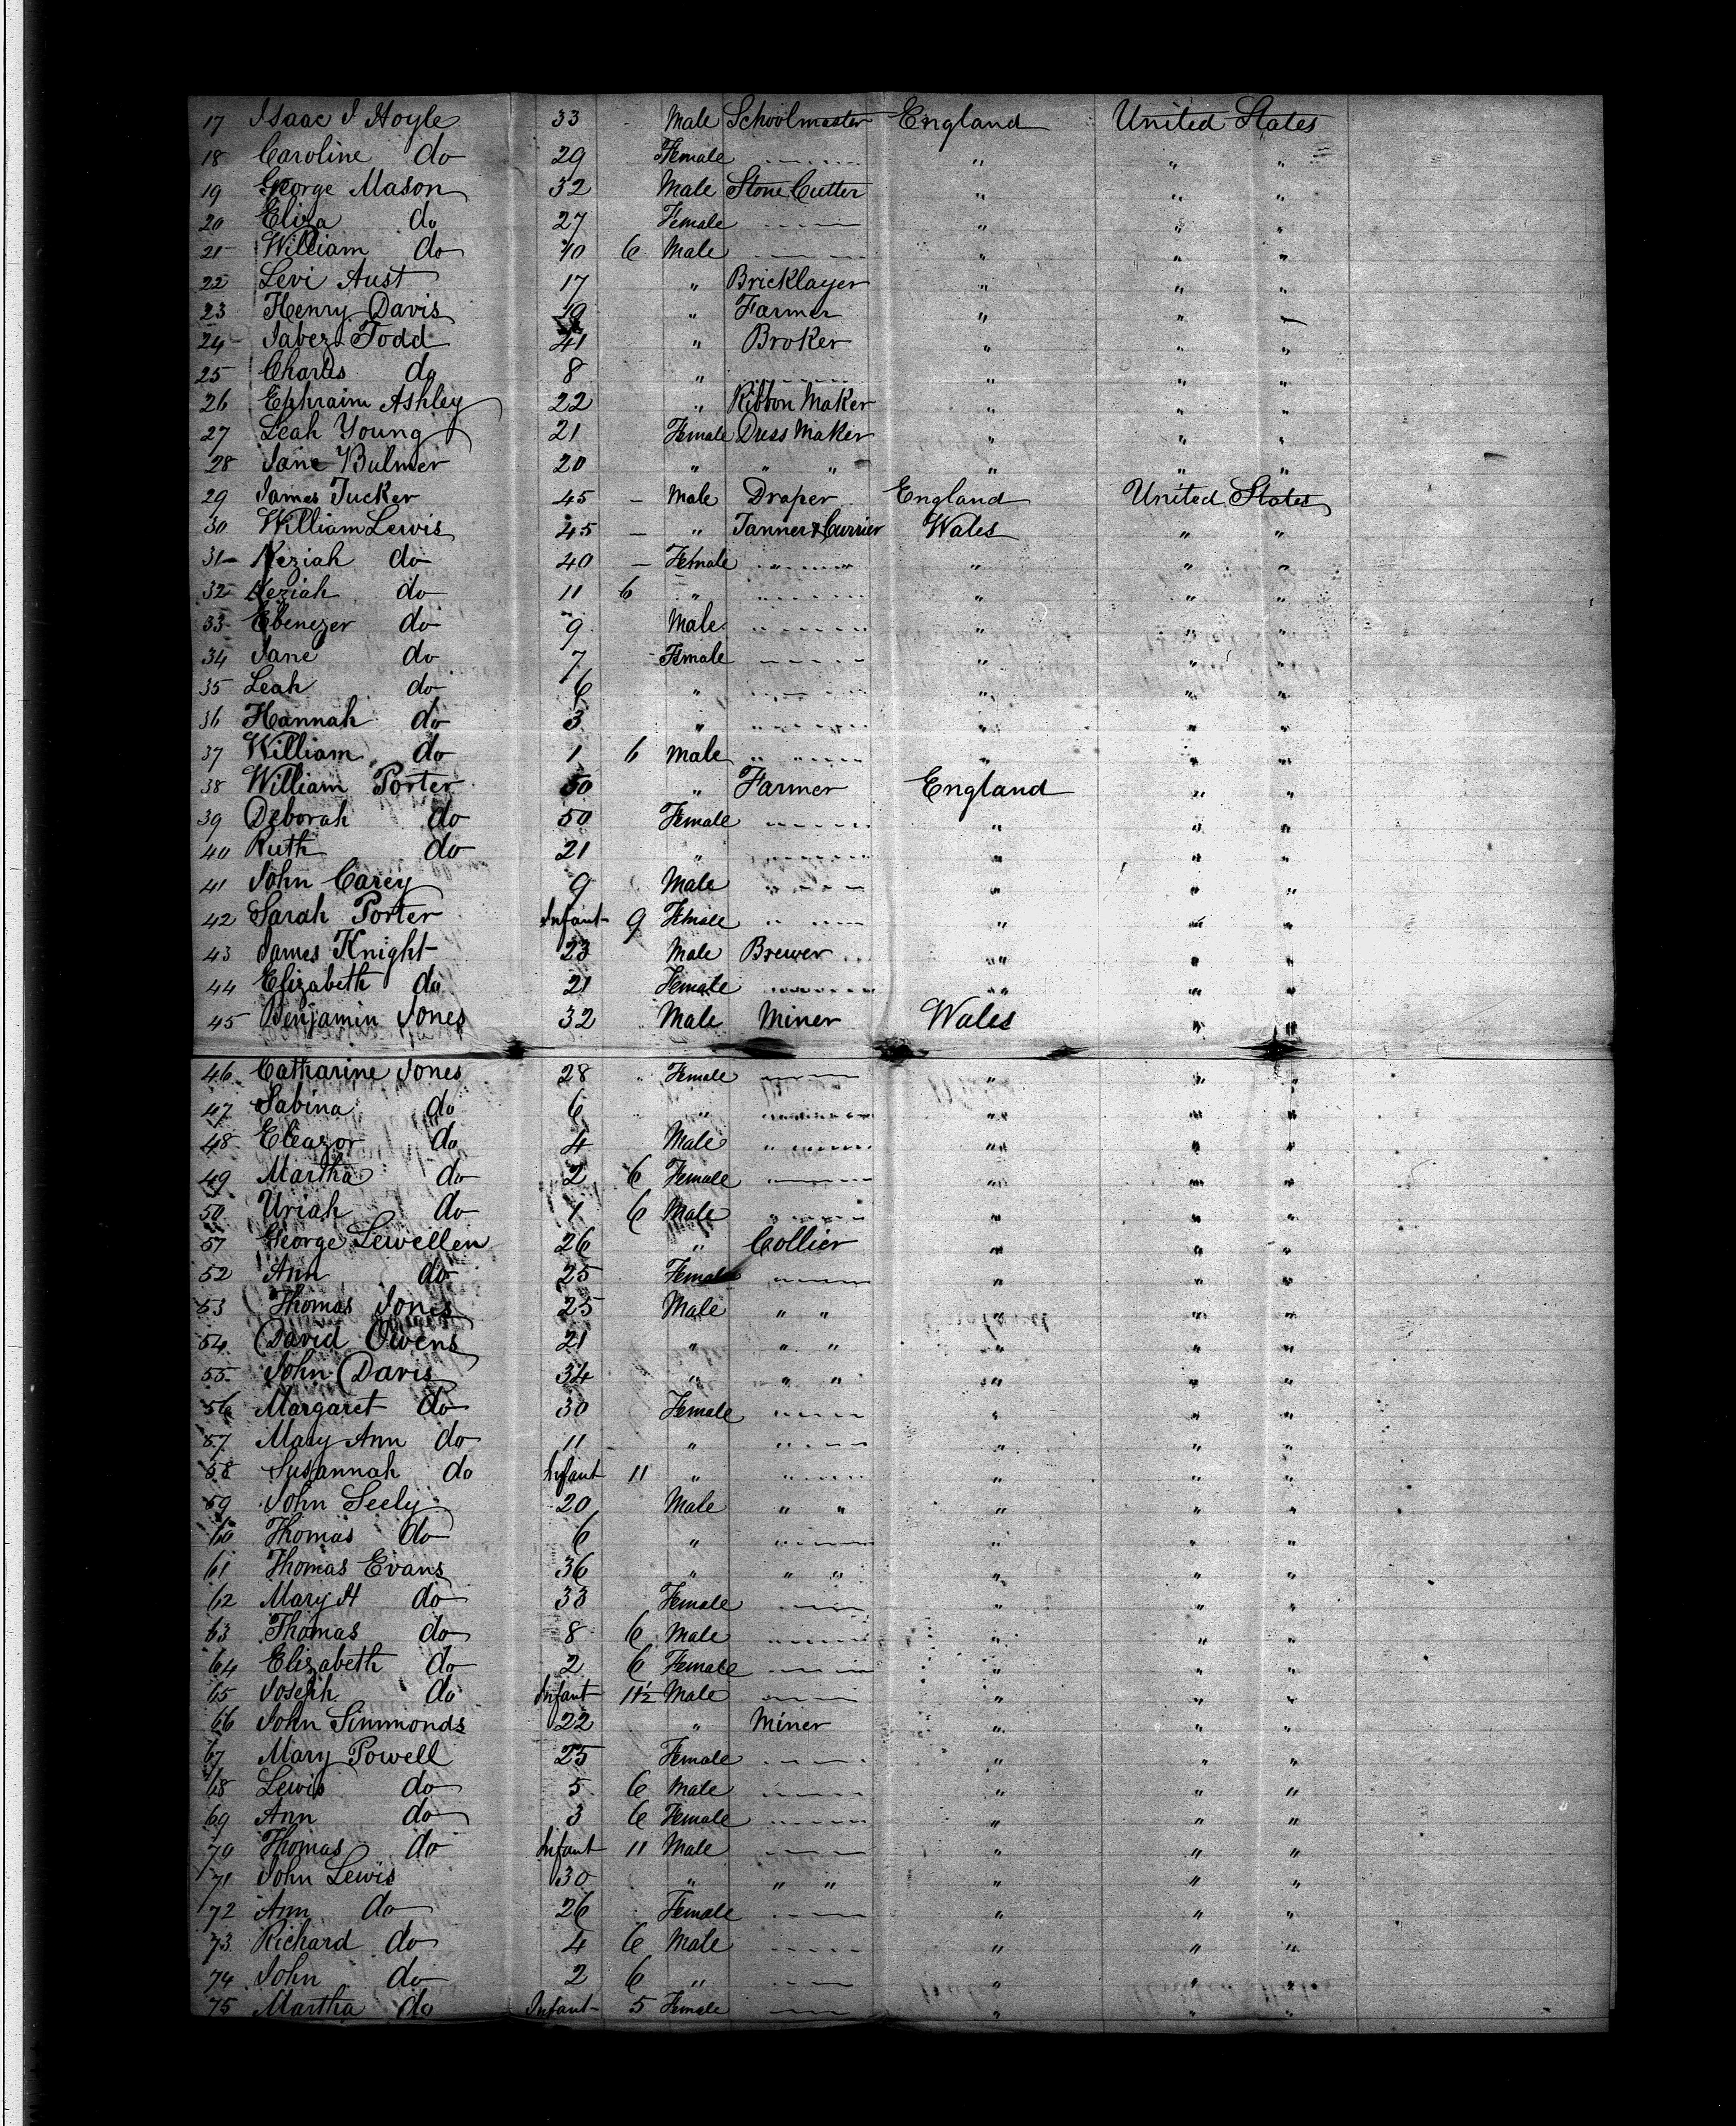 17 Isaac J Hoyle 33 Male Schoolmaster England United States
18 Caroline do 29 Female " " "
19 George Mason 32 Male Stone Cutter " " "
20 Eliza do 27 Female " " "
21 William do 10 6 Male " " "
22 Levi Aust 17 " Bricklayer " " "
23 Henry Davis 19 " Farmer " " "
24 Jabez Todd 41 " Broker " " "
25 Charles do 8 " " " "
26 Ephraim Ashley 22 " Ribbon Maker " " "
27 Leah Young 21 Female Dress Maker " " "
28 Jane Bulmer 20 " " " " " "
29 James Tucker 45 – Male Draper England United States
30 William Lewis 45 – " Tanner & Currier Wales " "
31 Keziah do 40 – Female " " "
32 Keziah do 11 6 " " " "
33 Ebenezer do 9 Male " " "
34 Jane do 7 Female " " "
35 Leah do 6 " " " "
36 Hannah do 3 " " " "
37 William do 1 6 Male " " "
38 William Porter 50 " Farmer England " "
39 Deborah do 50 Female " " "
40 Ruth do 21 " " " "
41 John Carey 9 Male " " "
42 Sarah Porter Infant 9 Female " " "
43 James Knight 23 Male Brewer " " "
44 Elizabeth do 21 Female " " "
45 Benjamin Jones 32 Male Miner Wales " "
46 Catharine Jones 28 Female " " "
47 Sabina do 6 " " " "
48 Eleazor do 4 Male " " "
49 Martha do 2 6 Female " " "
50 Uriah do 1 6 Male " " "
51 George Lewellen 26 " Collier " " "
52 Ann do 25 Female " " "
53 Thomas Jones 25 Male " " " " "
54 David Owens 21 " " " " " "
55 John Davis 34 " " " " " "
56 Margaret do 30 Female " " "
57 Mary Ann do 11 " " " "
58 Susannah do Infant 11 " " " "
59 John Seely 20 Male " " " " "
60 Thomas do 6 " " " "
61 Thomas Evans 36 " " " " " "
62 Mary H do 33 Female " " "
63 Thomas do 8 6 Male " " "
64 Elizabeth do 2 6 Female " " "
65 Joseph do Infant 11½ Male " " "
66 John Simmonds 22 " Miner " " "
67 Mary Powell 25 Female " " "
68 Lewis do 5 6 Male " " "
69 Ann do 3 6 Female " " "
70 Thomas do Infant 11 Male " " "
71 John Lewis 30 " " " " " "
72 Ann do 26 Female " " "
73 Richard do 4 6 Male " " "
74 John do 2 6 " " " "
75 Martha do Infant 5 Female " " "